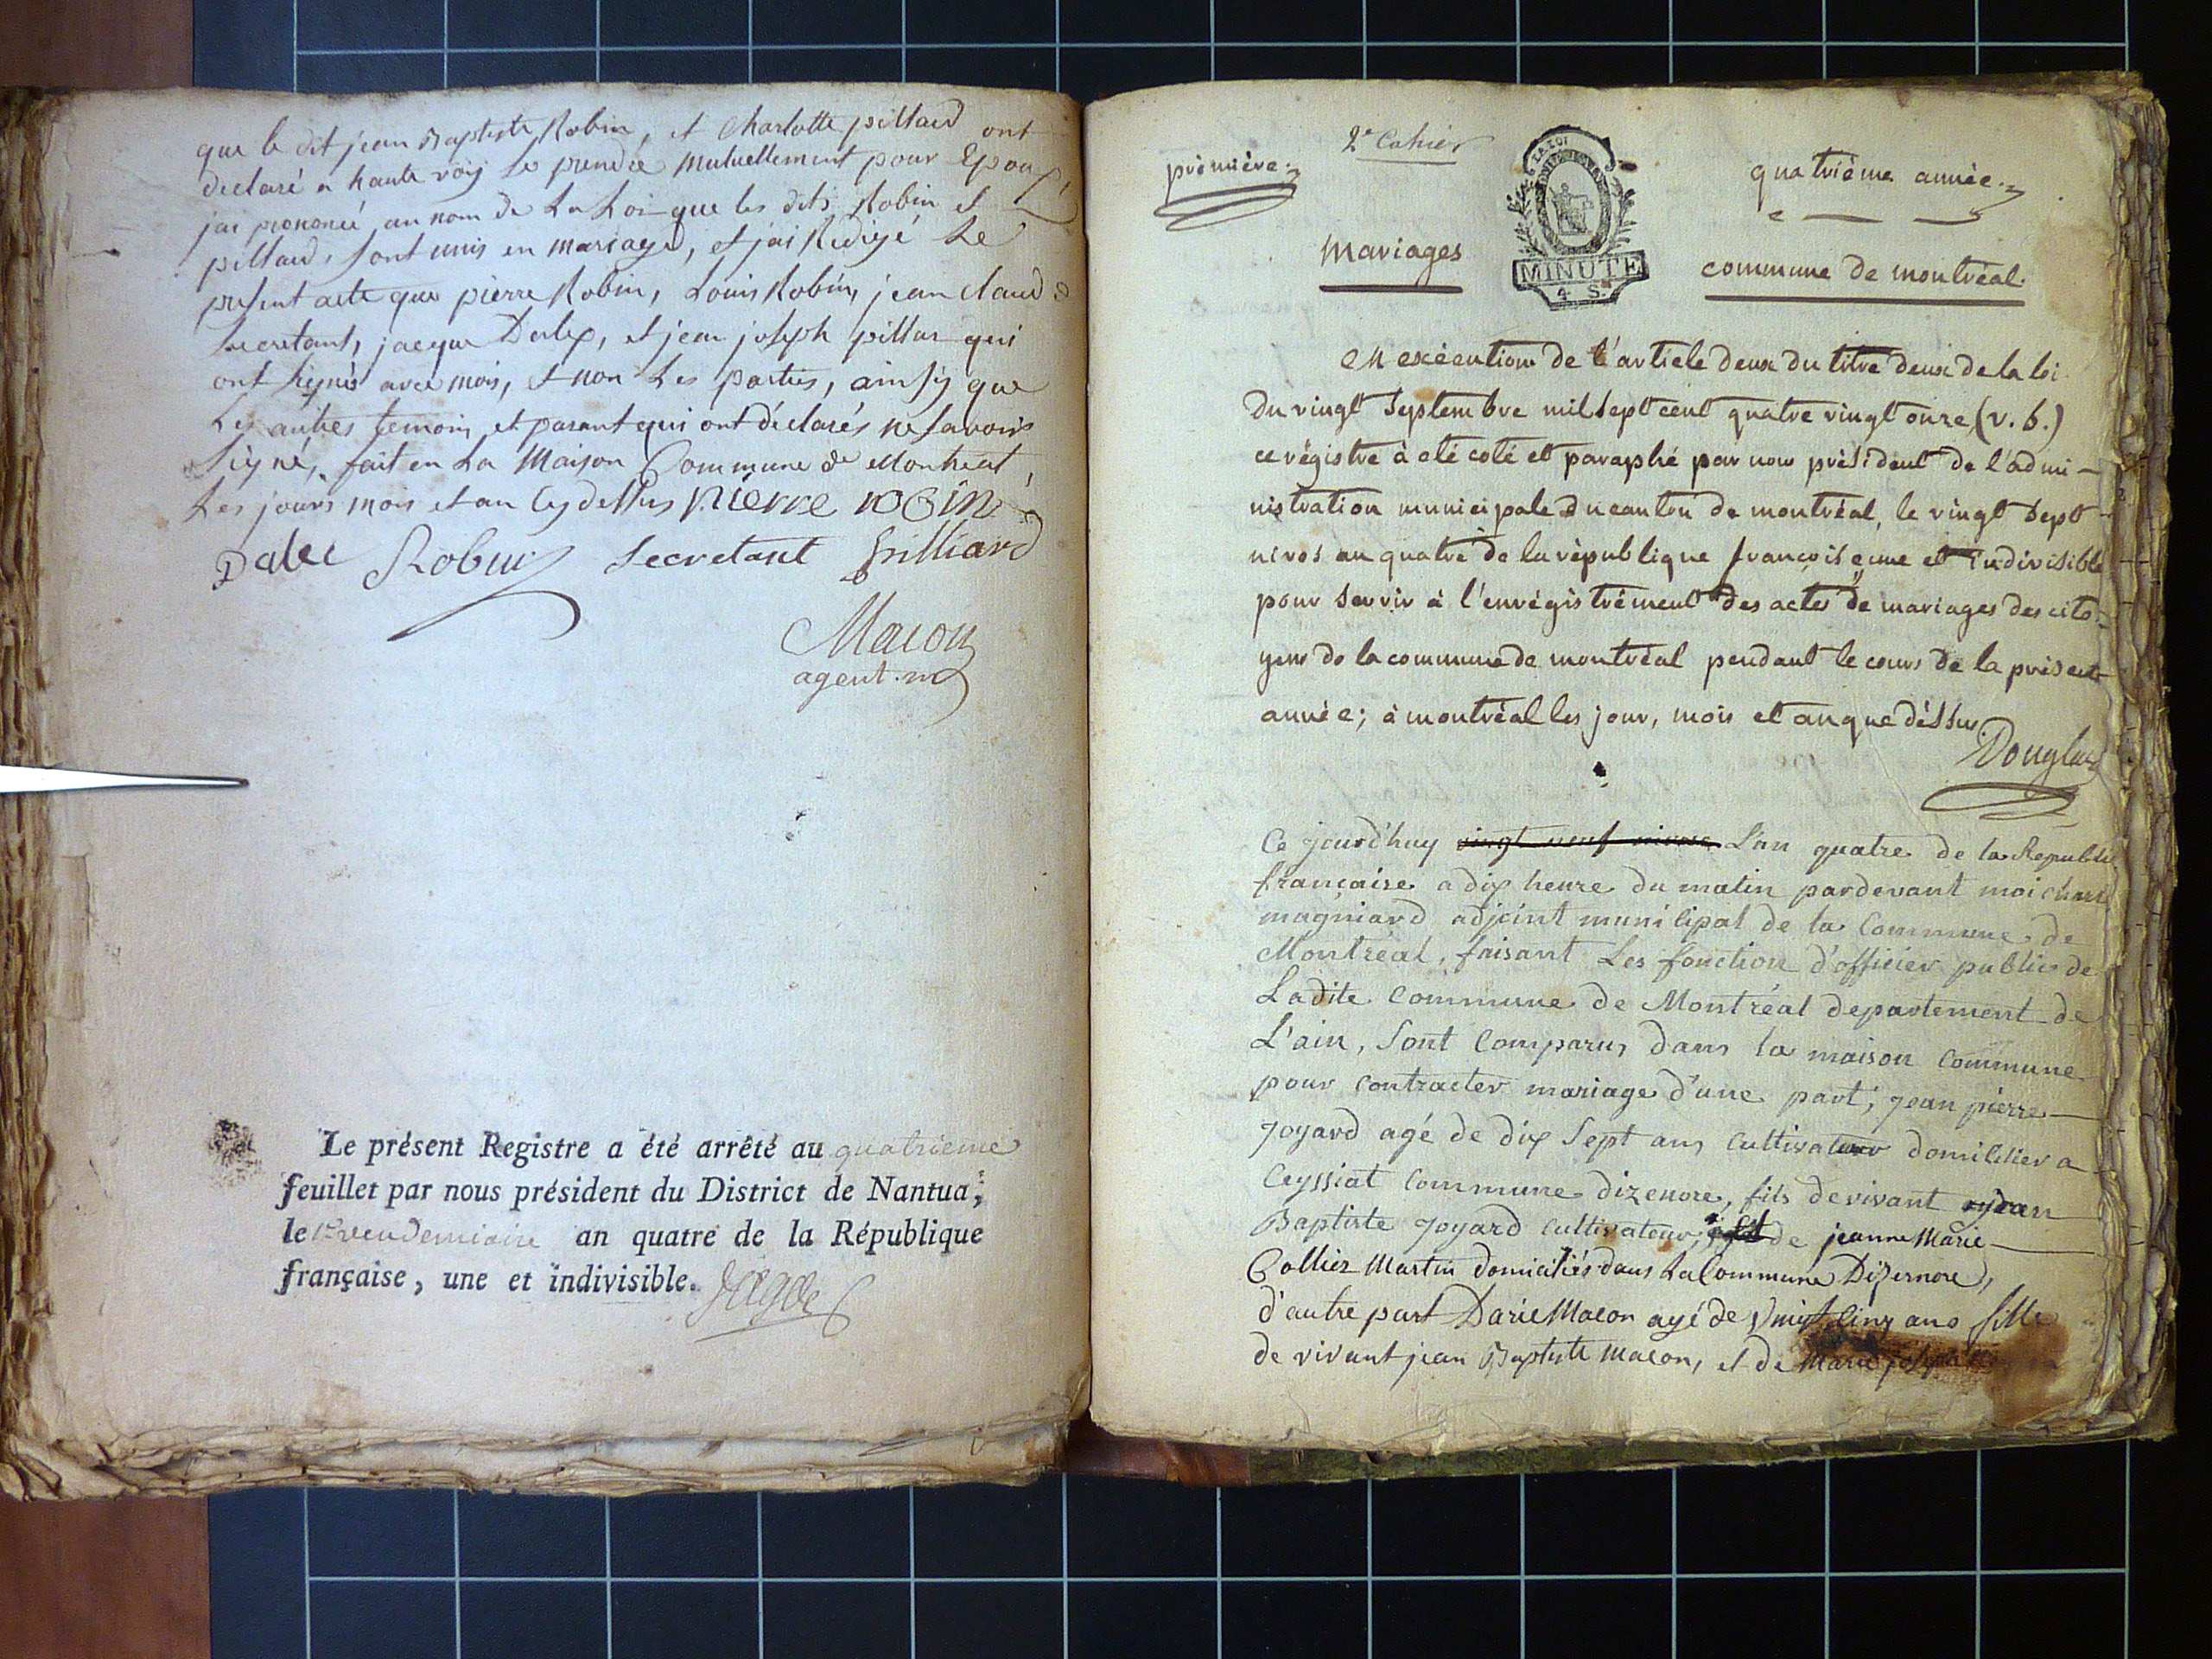 que le dit jean Baptiste Robin, et Charlotte pillard ont
declaré a haute voix se prendre mutuellement pour Epoux
jai prononcé au nom de La Loi que les dits Robin et
pillard, sont unis en mariage, et jai Redigé Le
present acte que pierre Robin, Louis Robin, jean claude
Secretant, jacque Dalex, et jean joseph pillar qui
ont signés avec mois, et non Les parties, ainsÿ que
Les autres temoins et parant qui ont déclarés ne savoir
signé, fait en La Maison Commune de Montreal,
Les jours mois et an cy dessus pierre robin
Dalec Robin Secretant pilliard
Macon
agent. m
Le présent Registre a été arrêté au quatrieme
feuillet par nous président du District de Nantua,
le 1er vendemiaire an quatre de la République
française, une et indivisible.
2e Cahier
première
quatriéme année.
LA LOI
mariages
MINUTE
4 S.
commune de montréal.
en exécution de l'article deux du titre deux de la loi
du vingt septembre mil sept cent quatre vingt onze, (v. s.)
ce régistre à été coté et paraphé par nous président de l'admi-
nistration municipale du canton de montréal, le vingt sept
nivos an quatre de la république françoise une et indivisible
pour servir à l'enrégistrément des actes de mariages des cito-
yens de la commune de montréal pendant le cours de la présente
année; à montréal les jour, mois et an que déssus.
Douglas
Ce jourd'huy vingt neuf nivose L'an quatre de la Republi
française a dix heure du matin pardevant moi
magniard adjoint municipal de la Commune de
Montréal, faisant Les fonction d'officier public de
Ladite Commune de Montréal departement de
L'ain, Sont Comparus dans la maison Commune
pour Contracter mariage d'une part, jean pierre
joyard agé de dix sept ans Cultivateur domicilier a
Ceyssiat Commune dizenore, fils de vivant
Baptiste joyard Cultivateur, de jeanne Marie
Collier Martin domiciliés dans La Commune Dizernore,
d'autre part Darie Macon agé de Vingt Cinq ans fille
de vivant jean Baptiste Macon, et de Marie joseph